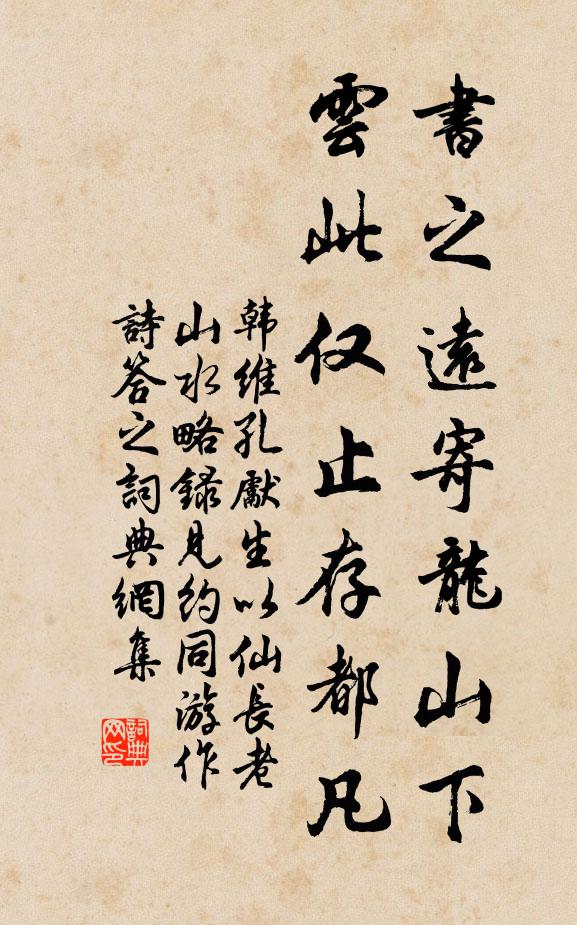 書之遠寄龍山下
雲此仅止存都凡
韩維孔獻生以仙長老
山水略録見約同游作
詩答之詞典網集
詞典
网印